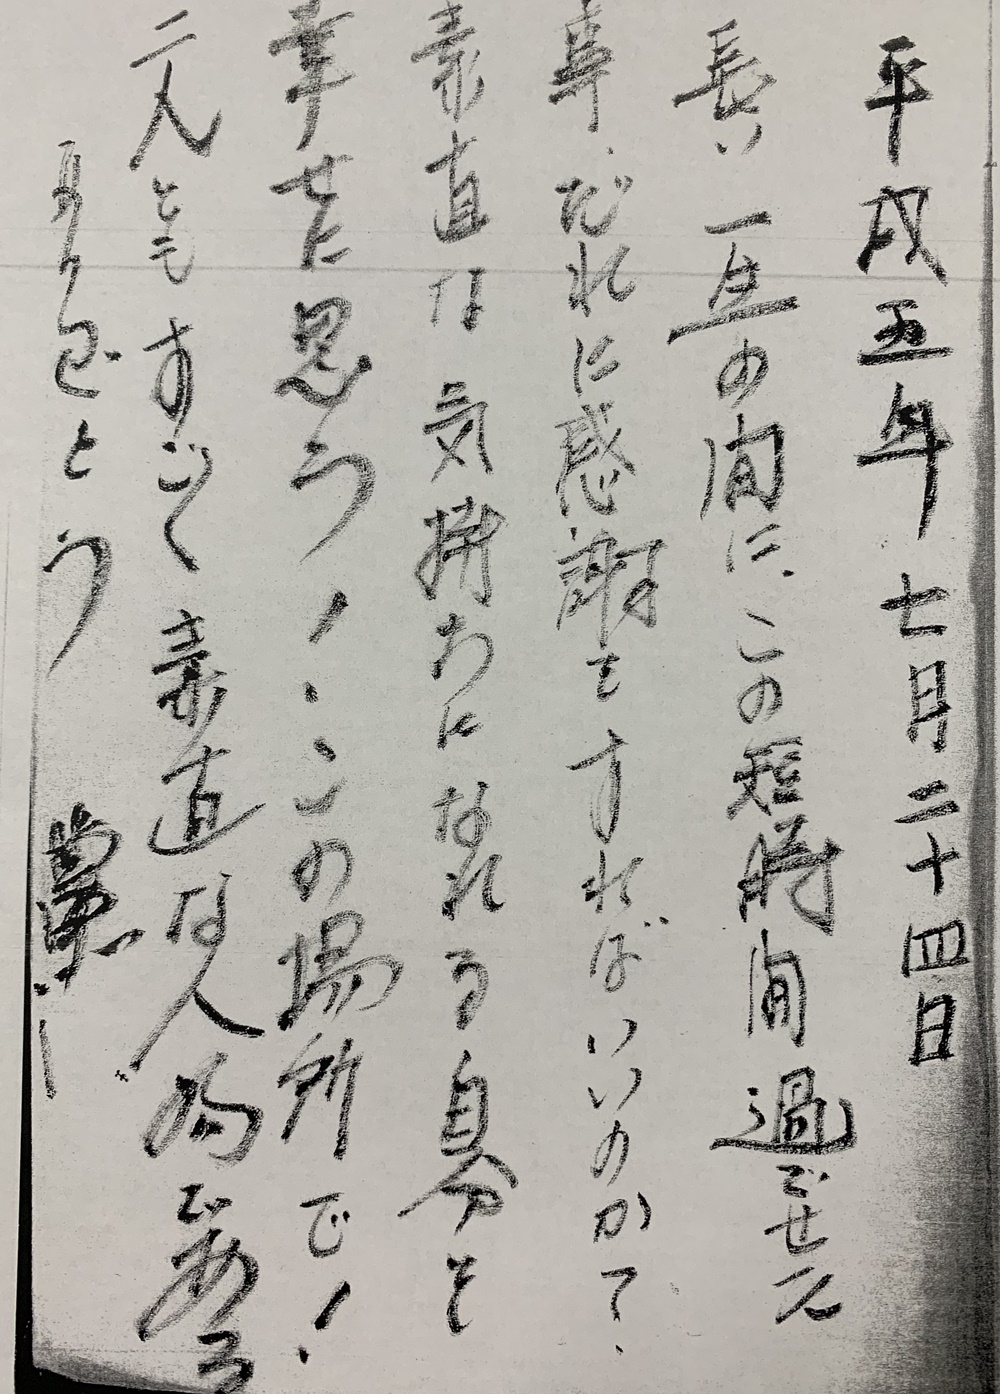 平成五年 七月二十四日
長い一生の間に、この短時間過ごせた
事、だれに感謝をすればいいのかて、
素直な気持ちになれる自分を
幸せに思う!、この場所で!
二人ともすごく素直な人
とう